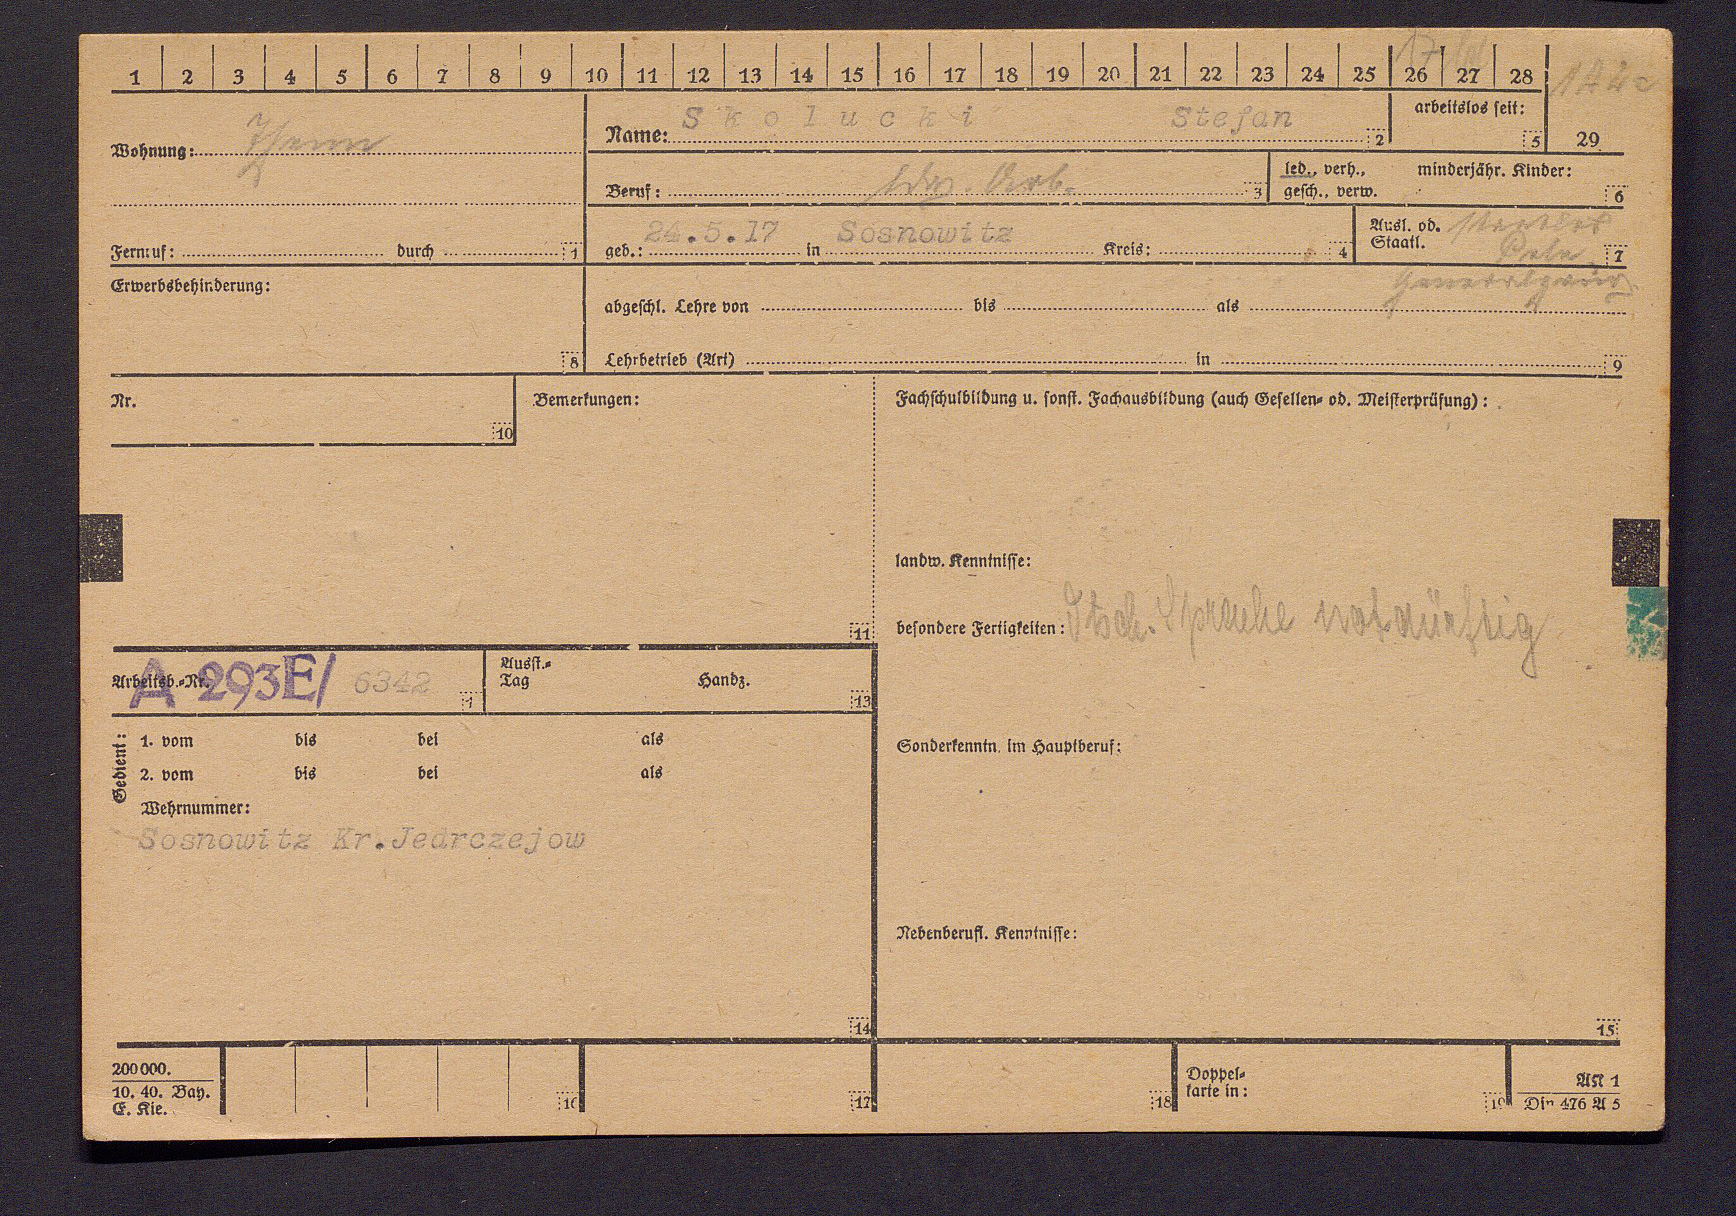 1 2 3 4 5 6 7 8 9 10 11 12 13 14 15 16 17 18 19 20 21 22 23 24 25 26 27 28
Wohnung:
Name: Skolucki Stefan 2
arbeitslos seit: 5
29
Beruf: ldw. Arb. 3
led., verh., gesch., verw.
minderjähr. Kinder: 6
Fernruf: durch 1
geb.: 24.5.17 in Sosnowitz Kreis: 4
Ausl. od. Staatl. 7
Erwerbsbehinderung: 8
abgeschl. Lehre von bis als
Lehrbetrieb (Art) in 9
Nr. 10
Bemerkungen: 11
Fachschulbildung u. sonst. Fachausbildung (auch Gesellen- od. Meisterprüfung):
landw. Kenntnisse:
besondere Fertigkeiten: Dtsch. Sprache notdürftig
Arbeitsb.-Nr. A 293E/ 6342
Ausst.-Tag Handz. 13
Gedient:
1. vom bis bei als
2. vom bis bei als
Wehrnummer:
Sosnowitz Kr.Jedrczejow
14
Sonderkenntn. im Hauptberuf:
Nebenberufl. Kenntnisse:
15
200000.
10. 40. Bay.
E. Kie.
16
17
18
Doppel-
karte in:
19
AN 1
Din 476 A 5